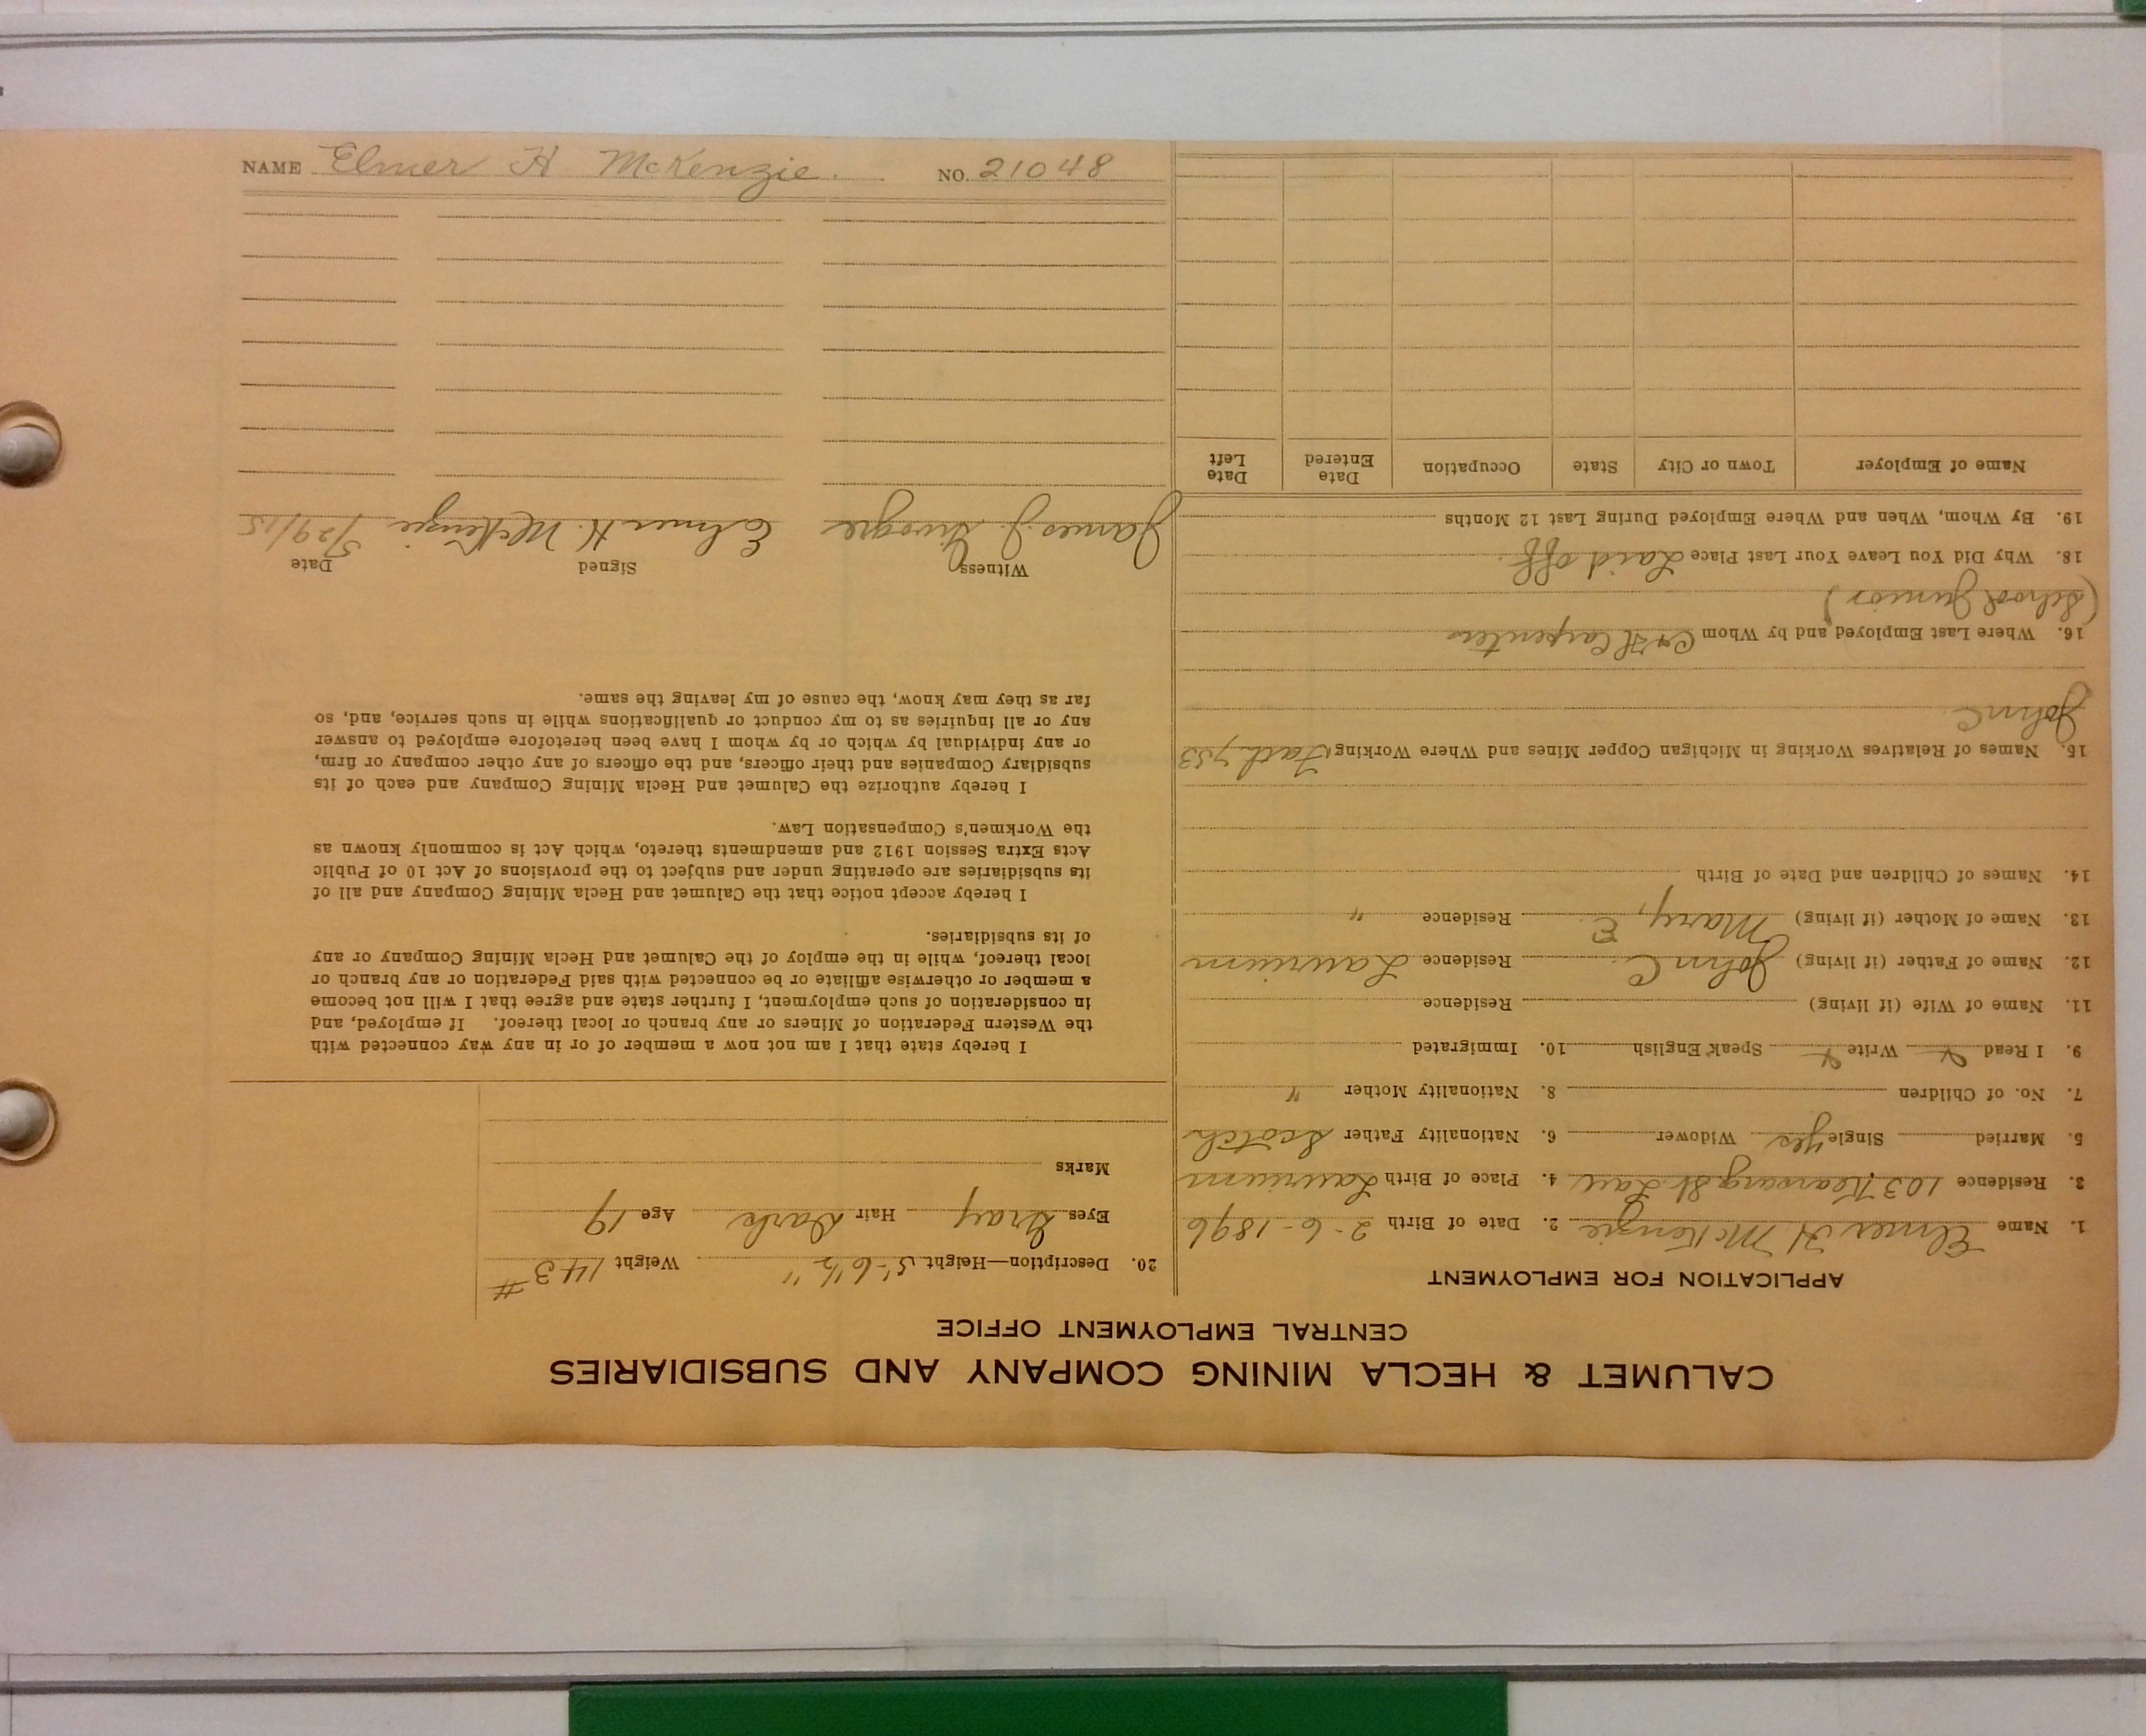 CALUMET & HECLA MINING COMPANY AND SUBSIDIARIES
CENTRAL EMPLOYMENT OFFICE
APPLICATION FOR EMPLOYMENT
1. Name Elmer H McKenzie 2. Date of Birth 2-6-1896
3. Residence 103 Kearsarge St. Lau 4. Place of Birth Laurium
5. Married Single yes Widower 6. Nationality Father Scotch
7. No. of Children 8. Nationality Mother "
9. I Read Write Speak English 10. Immigrated
11. Name of Wife (if living) Residence
12. Name of Father (if living) John C. Residence Laurium
13. Name of Mother (if living) Mary, E Residence "
14. Names of Children and Date of Birth
15. Names of Relatives Working in Michigan Copper Mines and Where Working Fath 753
John C
16. Where Last Employed and by Whom C & H Carpenters
(School Junior)
18. Why Did You Leave Your Last Place Laid off.
19. By Whom, When and Where Employed During Last 12 Months
Name of Employer Town or City State Occupation Date Entered Date Left
20. Description—Height 5'-6 1/2" Weight 143 #
Eyes Gray Hair Dark Age 19
Marks
I hereby state that I am not now a member of or in any way connected with
the Western Federation of Miners or any branch or local thereof. If employed, and
in consideration of such employment, I further state and agree that I will not become
a member or otherwise affiliate or be connected with said Federation or any branch or
local thereof, while in the employ of the Calumet and Hecla Mining Company or any
of its subsidiaries.
I hereby accept notice that the Calumet and Hecla Mining Company and all of
its subsidiaries are operating under and subject to the provisions of Act 10 of Public
Acts Extra Session 1912 and amendments thereto, which Act is commonly known as
the Workmen's Compensation Law.
I hereby authorize the Calumet and Hecla Mining Company and each of its
subsidiary Companies and their officers, and the officers of any other company or firm,
or any individual by which or by whom I have been heretofore employed to answer
any or all inquiries as to my conduct or qualifications while in such service, and, so
far as they may know, the cause of my leaving the same.
Witness Signed Date
James J. Elmer H. McKenzie 5/29/15
NAME Elmer H. McKenzie. NO. 21048